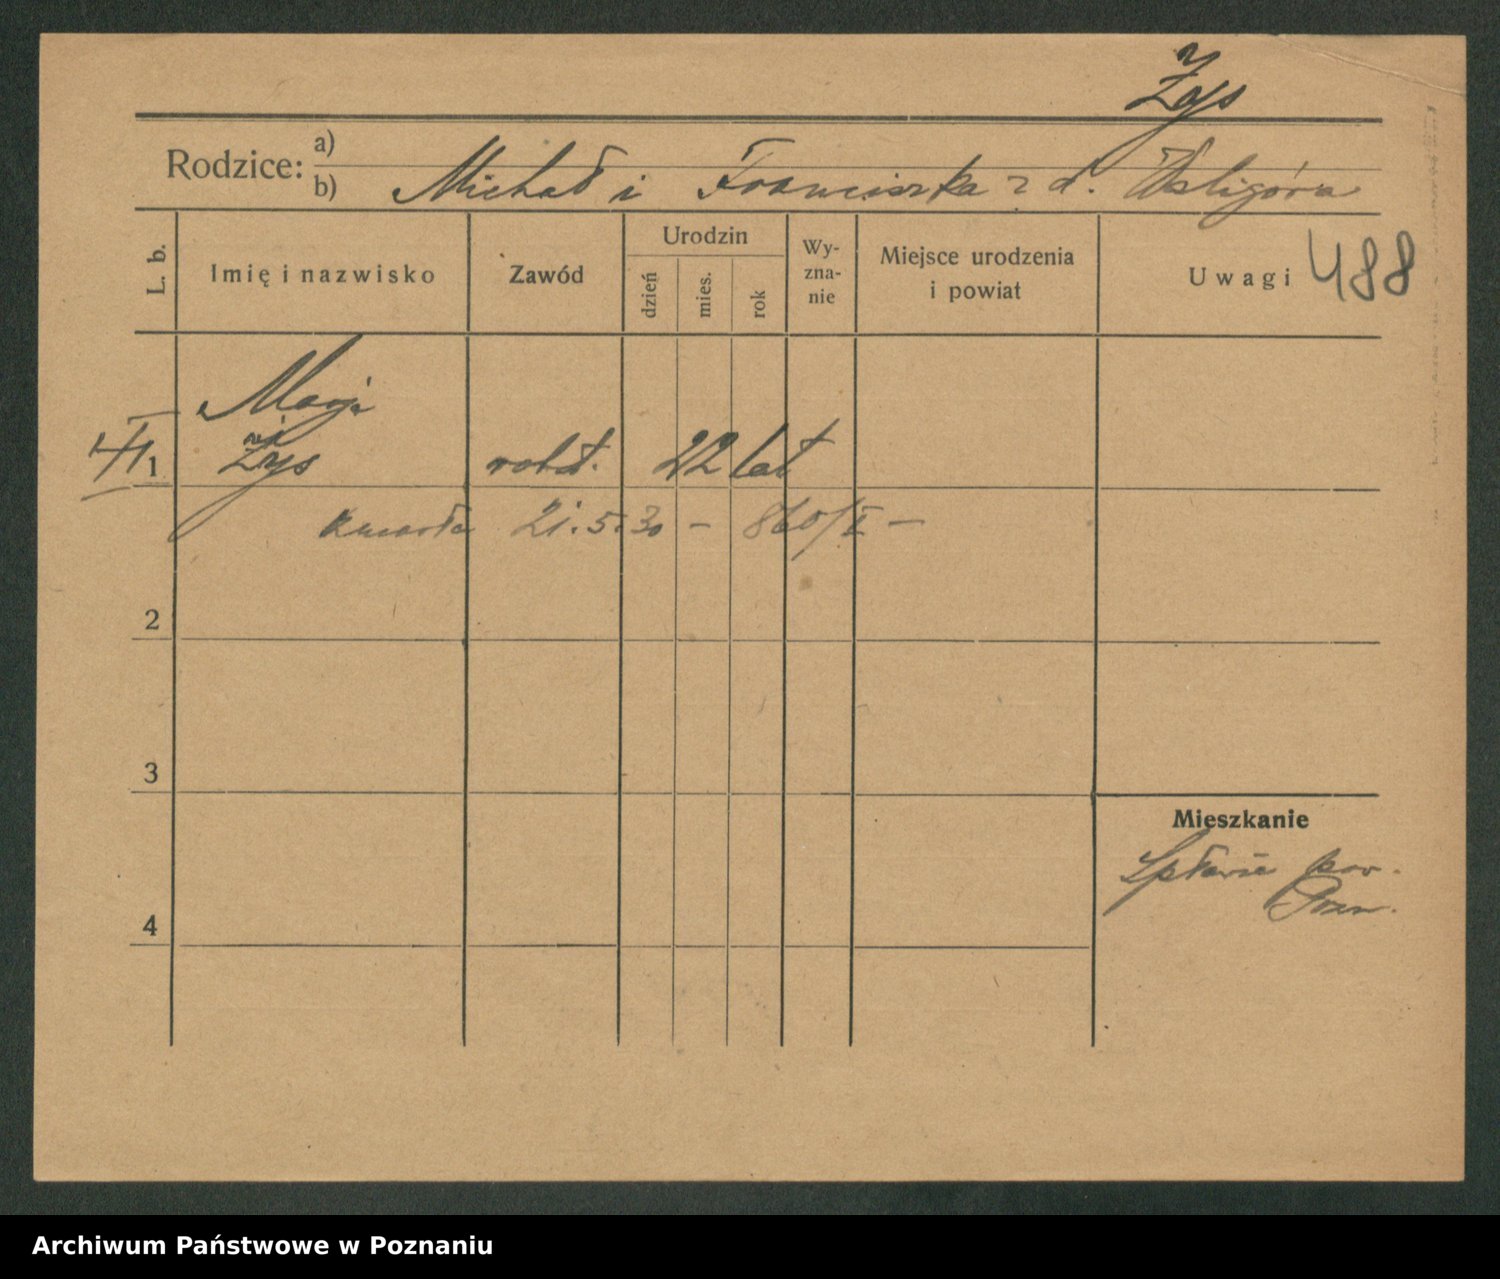 Żys
Rodzice: a)
b) Michał i Franciszka z d.
L. b. Imię i nazwisko Zawód Urodzin dzień mies. rok Wy-zna-nie Miejsce urodzenia i powiat Uwagi 488
Marja
1 Żys robot. 22 lat
zmarła 21.5.30 – 860/I –
2
3
Mieszkanie
pow.
4 Pozn.
Archiwum Państwowe w Poznaniu